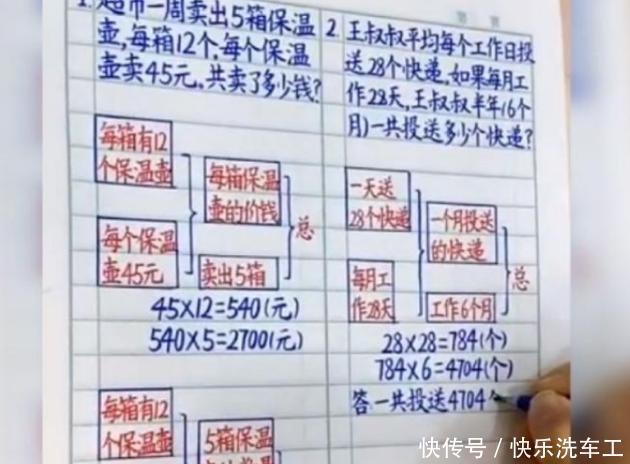 1. 超市一周卖出5箱保温
壶,每箱12个,每个保温
壶卖45元,共卖了多少钱?
每箱有12
个保温壶
每箱保温
壶的价钱
总
每个保温
壶45元
卖出5箱
45×12=540(元)
540×5=2700(元)
每箱有12
个保温壶
5箱保温
2. 王叔叔平均每个工作日投
送28个快递,如果每月工
作28天,王叔叔半年(6个
月)一共投送多少个快递?
一天送
28个快递
一个月投送
的快递
总
每月工
作28天
工作6个月
28×28=784(个)
784×6=4704(个)
答一共投送4704
快传号/快乐洗车工